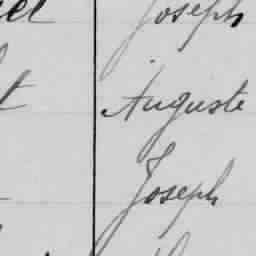 Joseph
Auguste
Joseph